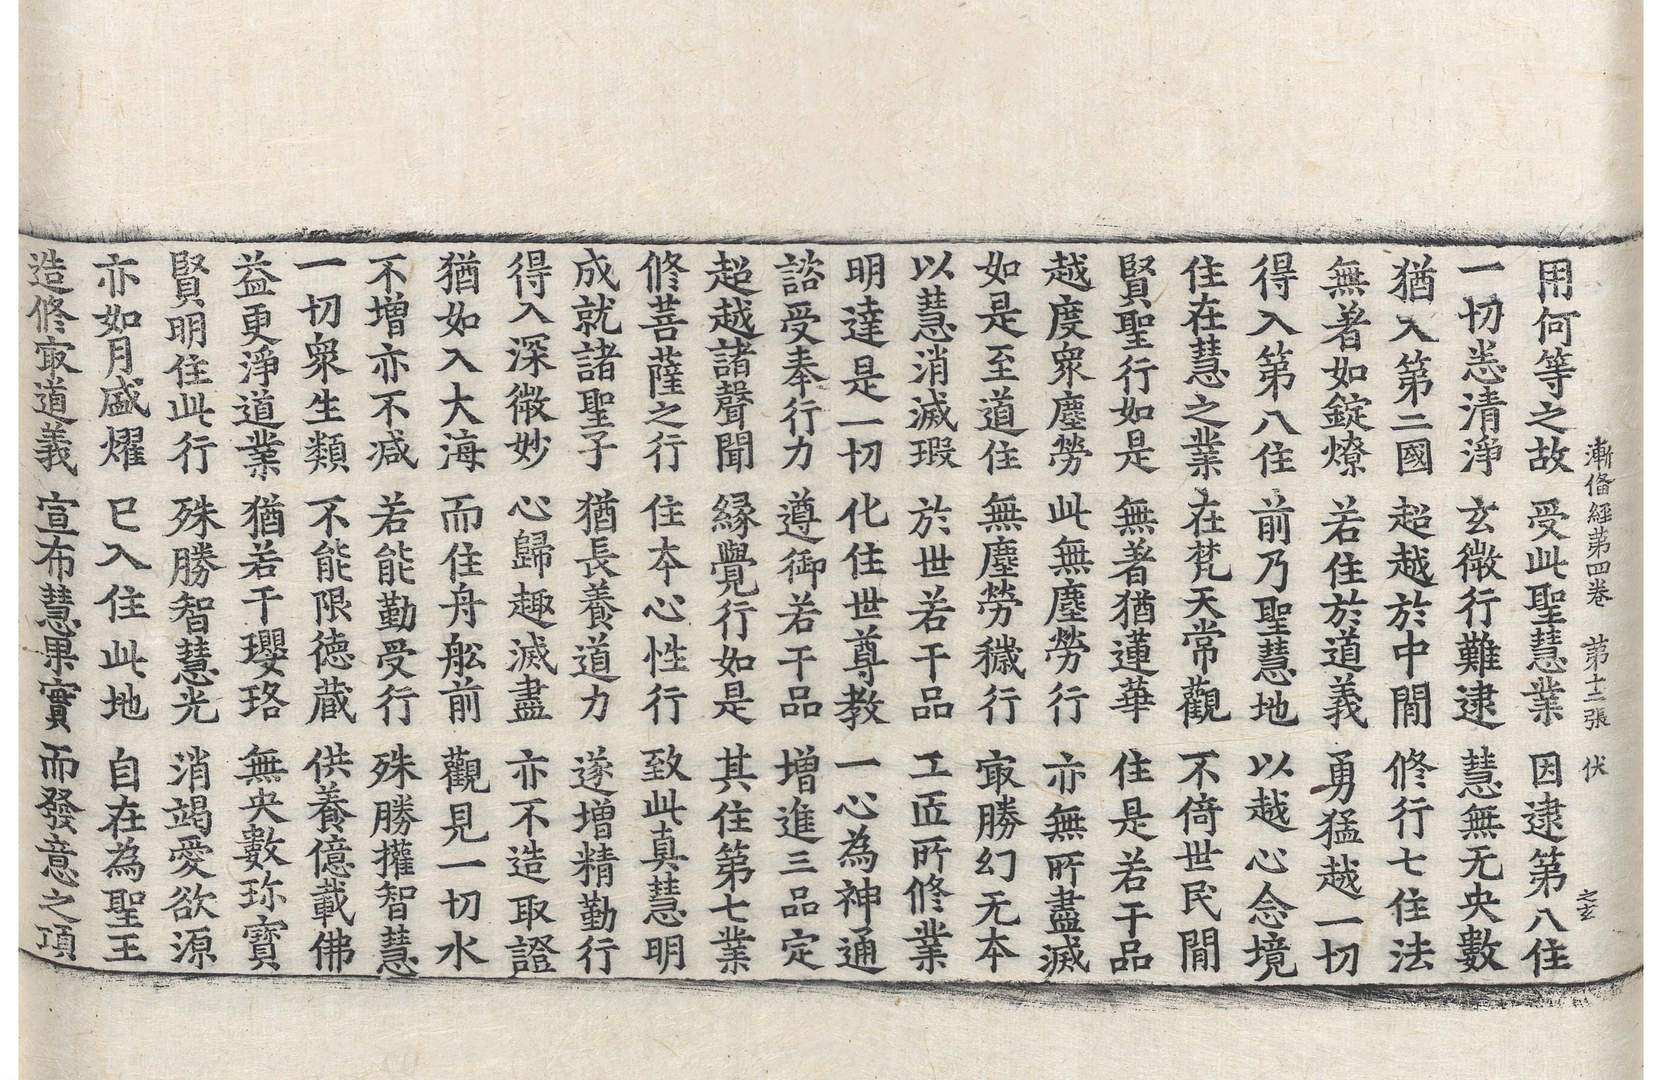 漸俻經第四卷　第十二張　伏
之玄
用何等之故　受此聖慧業　因逮第八住
一切恙清淨　玄微行難逮　慧無无央數
猶入第二國　超越於中閒　修行七住法
無著如錠燎　若住於道義　勇猛越一切
得入第八住　前乃聖慧地　以越心念境
住在慧之業　在梵天常觀　不倚世民閒
賢聖行如是　無著猶蓮華　住是若干品
越度衆塵勞　此無塵勞行　亦無所盡滅
如是至道住　無塵勞穢行　㝡勝幻无本
以慧消滅瑕　於世若干品　工匠所修業
明達是一切　化住世尊教　一心為神通
諮受奉行力　遵御若干品　增進三品定
超越諸聲聞　緣覺行如是　其住第七業
修菩薩之行　住本心性行　致此真慧明
成就諸聖子　猶長養道力　遂增精勤行
得入深微妙　心歸趣滅盡　亦不造取證
猶如入大海　而住舟舩前　觀見一切水
不增亦不減　若能勤受行　殊勝權智慧
一切衆生類　不能限德藏　供養億載佛
益更淨道業　猶若干瓔珞　無央數珎寶
賢明住此行　殊勝智慧光　消竭愛欲源
亦如月盛燿　已入住此地　自在為聖王
造修㝡道義　宣布慧果實　而發意之項